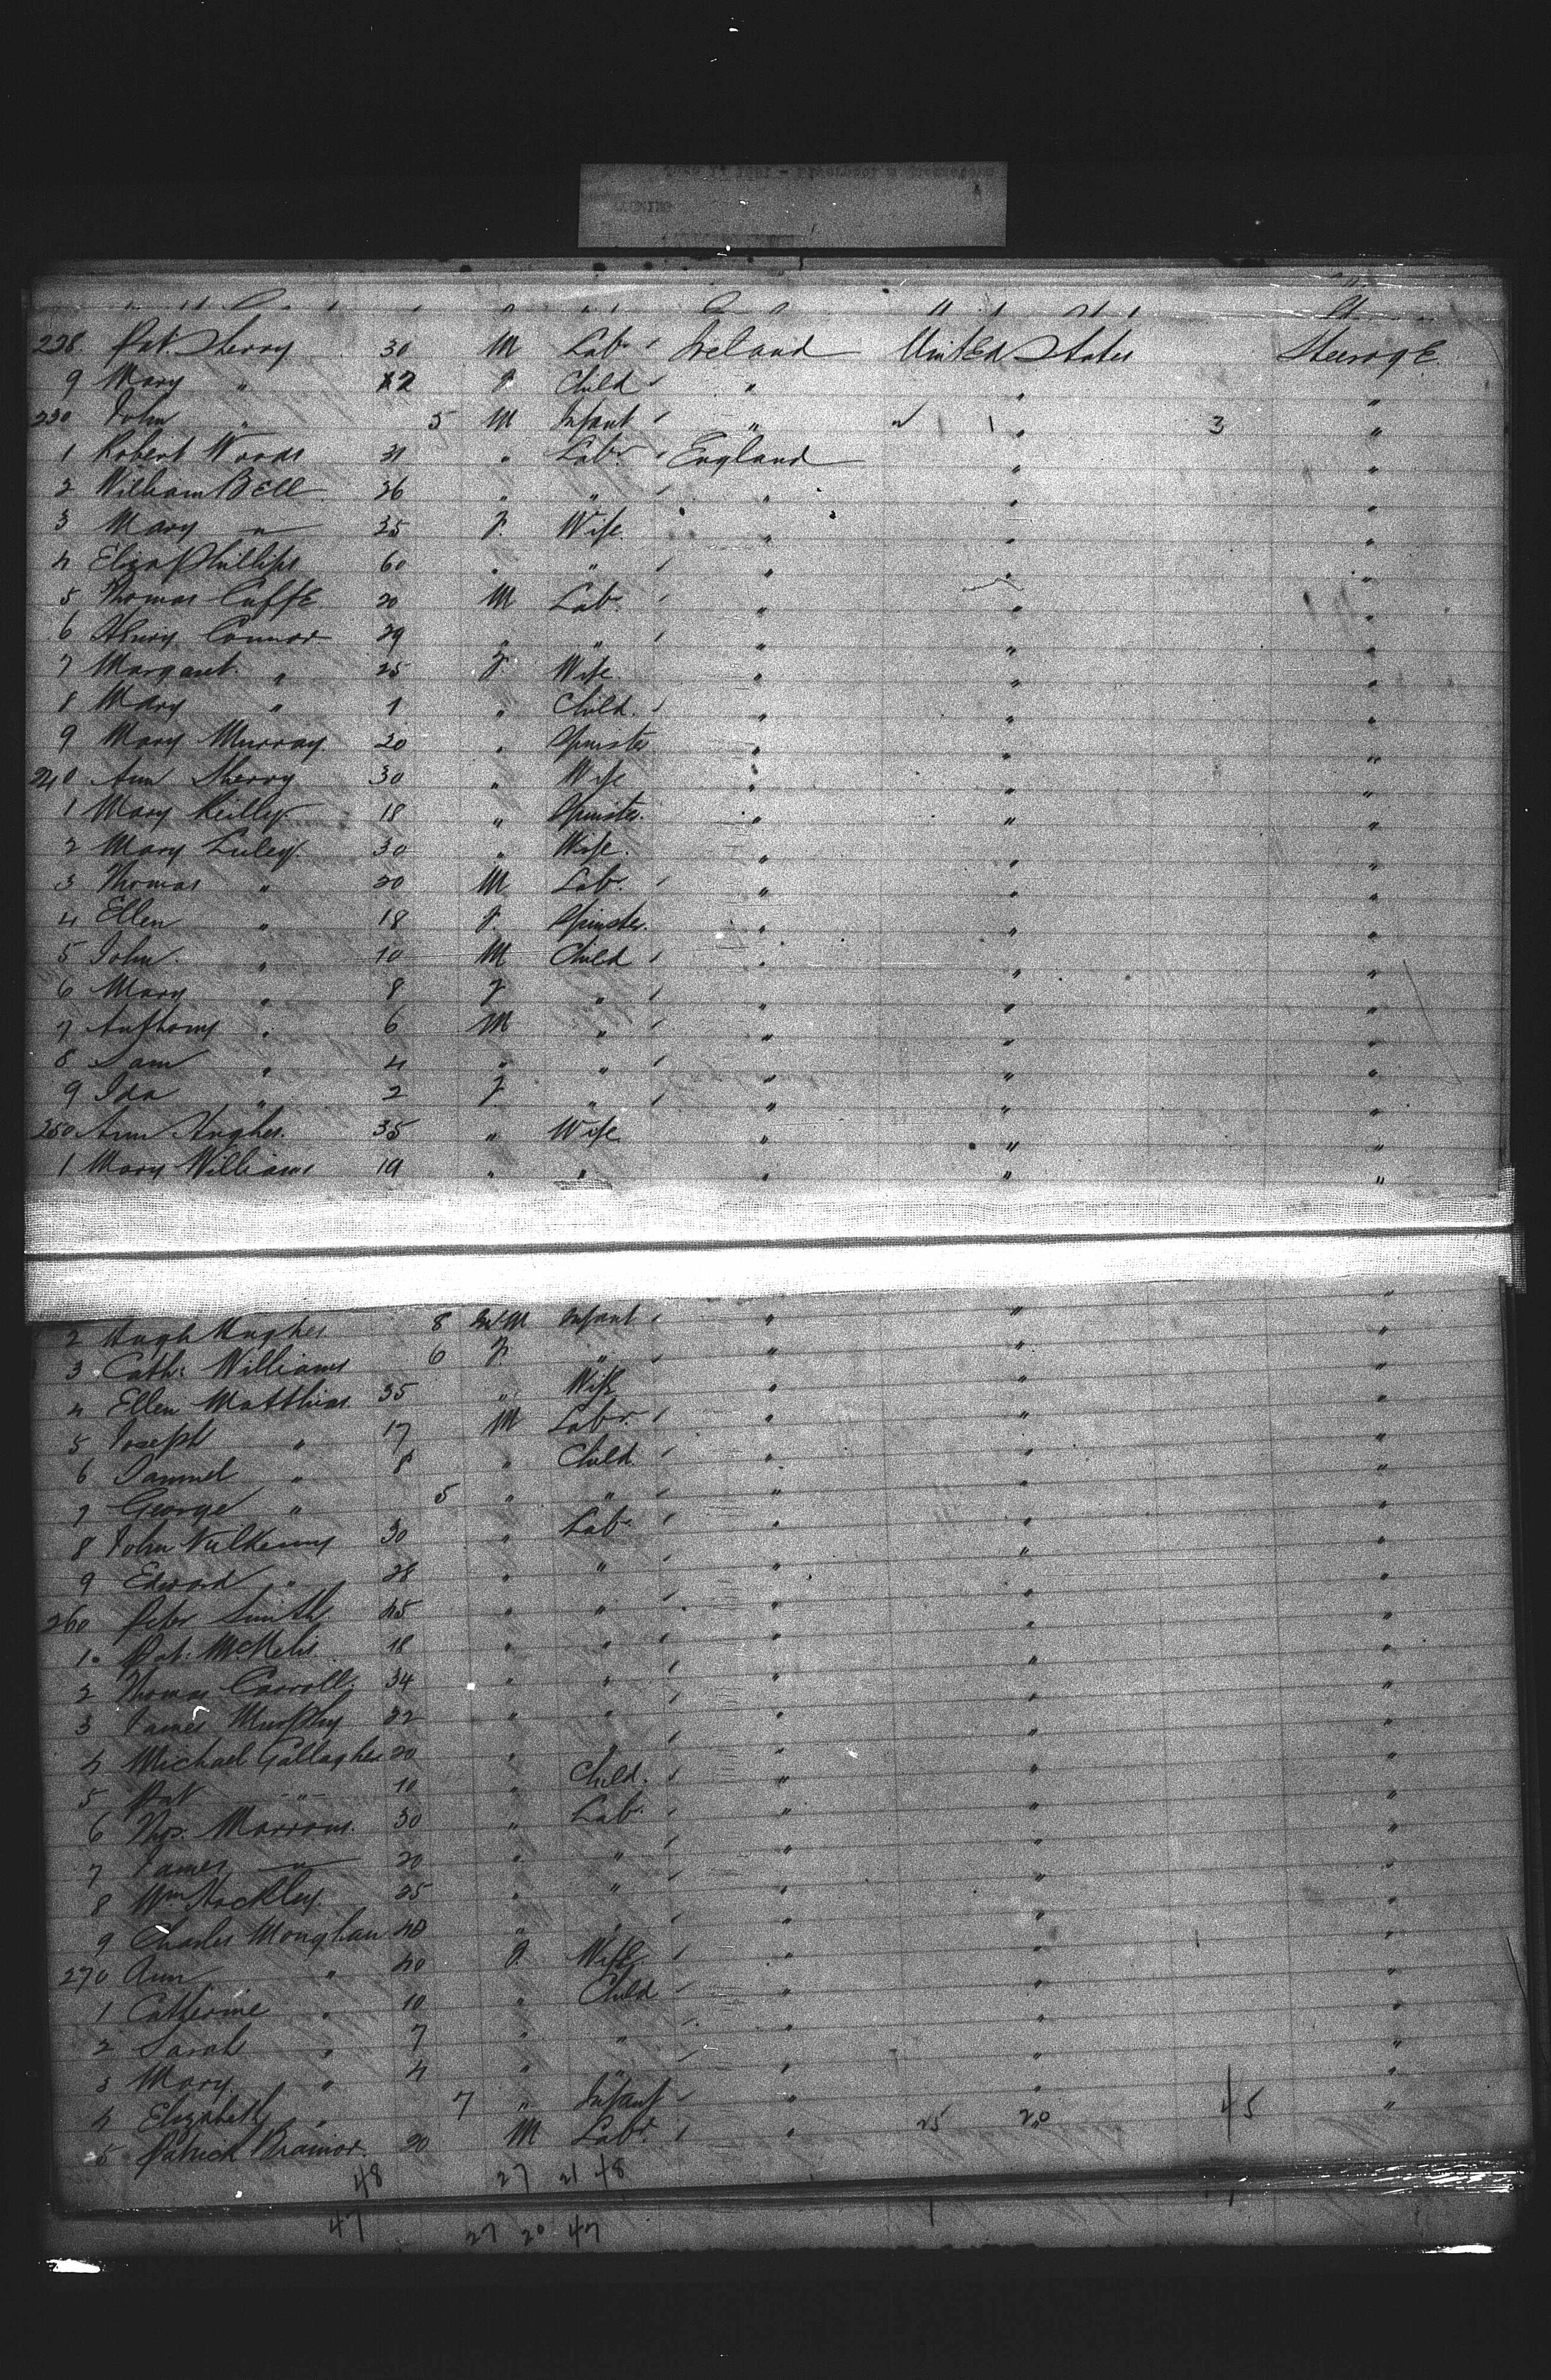 228. Pat. Sherry 30 M Lab. Ireland United States Steerage.
9 Mary " 12 F Child " " "
230 John " 5 M Infant " " 3 "
1 Robert Woods 31 " Labr. England " "
2 William Bell 26 " " " " "
3 Mary " 25 F. Wife " " "
4 Eliza Phillips 60 " " " " "
5 Thomas Cuffe 20 M Lab. " " "
6 Henry Connor 29 " " " " "
7 Margaret " 25 F. Wife " " "
8 Mary " 1 " Child " " "
9 Mary Murray 20 " Spinster " " "
240 Ann Sherry 30 " Wife " " "
1 Mary Reilly 18 " Spinster. " " "
2 Mary Luley. 30 " Wife. " " "
3 Thomas " 20 M Lab. " " "
4 Ellen " 18 F. Spinster. " " "
5 John " 10 M Child " " "
6 Mary " 8 F " " " "
7 Anthony " 6 M " " " "
8 Sam " 4 " " " " "
9 Ida " 2 F " " " "
250 Ann Hughes. 35 " Wife " " "
1 Mary Williams 19 " " " " "
2 Hugh Hughes 8 M Infant " " "
3 Cath: Williams 6 F. " " " "
4 Ellen Matthias 35 " Wife " " "
5 Joseph " 17 M Labr. " " "
6 Samuel " 8 " Child " " "
7 George " 5 " " " " "
8 John 30 " Lab " " "
9 Edward " 28 " " " " "
260 Peter Smith 45 " " " " "
1. Pat. 18 " " " " "
2 Thomas Carroll 34 " " " " "
3 James Murphy 22 " " " " "
4 Michael Gallagher 20 " " " " "
5 Pat " 10 " Child. " " "
6 Thos. 30 " Lab. " " "
7 James " 20 " " " " "
8 Wm. Hockley. 25 " " " " "
9 Charles Monghan 40 " " " " "
270 Ann " 40 F. Wife " " "
1 Catherine " 10 " Child " " "
2 Sarah " 7 " " " " "
3 Mary " 4 " " " " "
4 Elizabeth " 7 " Infant " " "
5 Patrick 20 M Labr. " 25 20 45 "
48 27 21 48
47 27 20 47